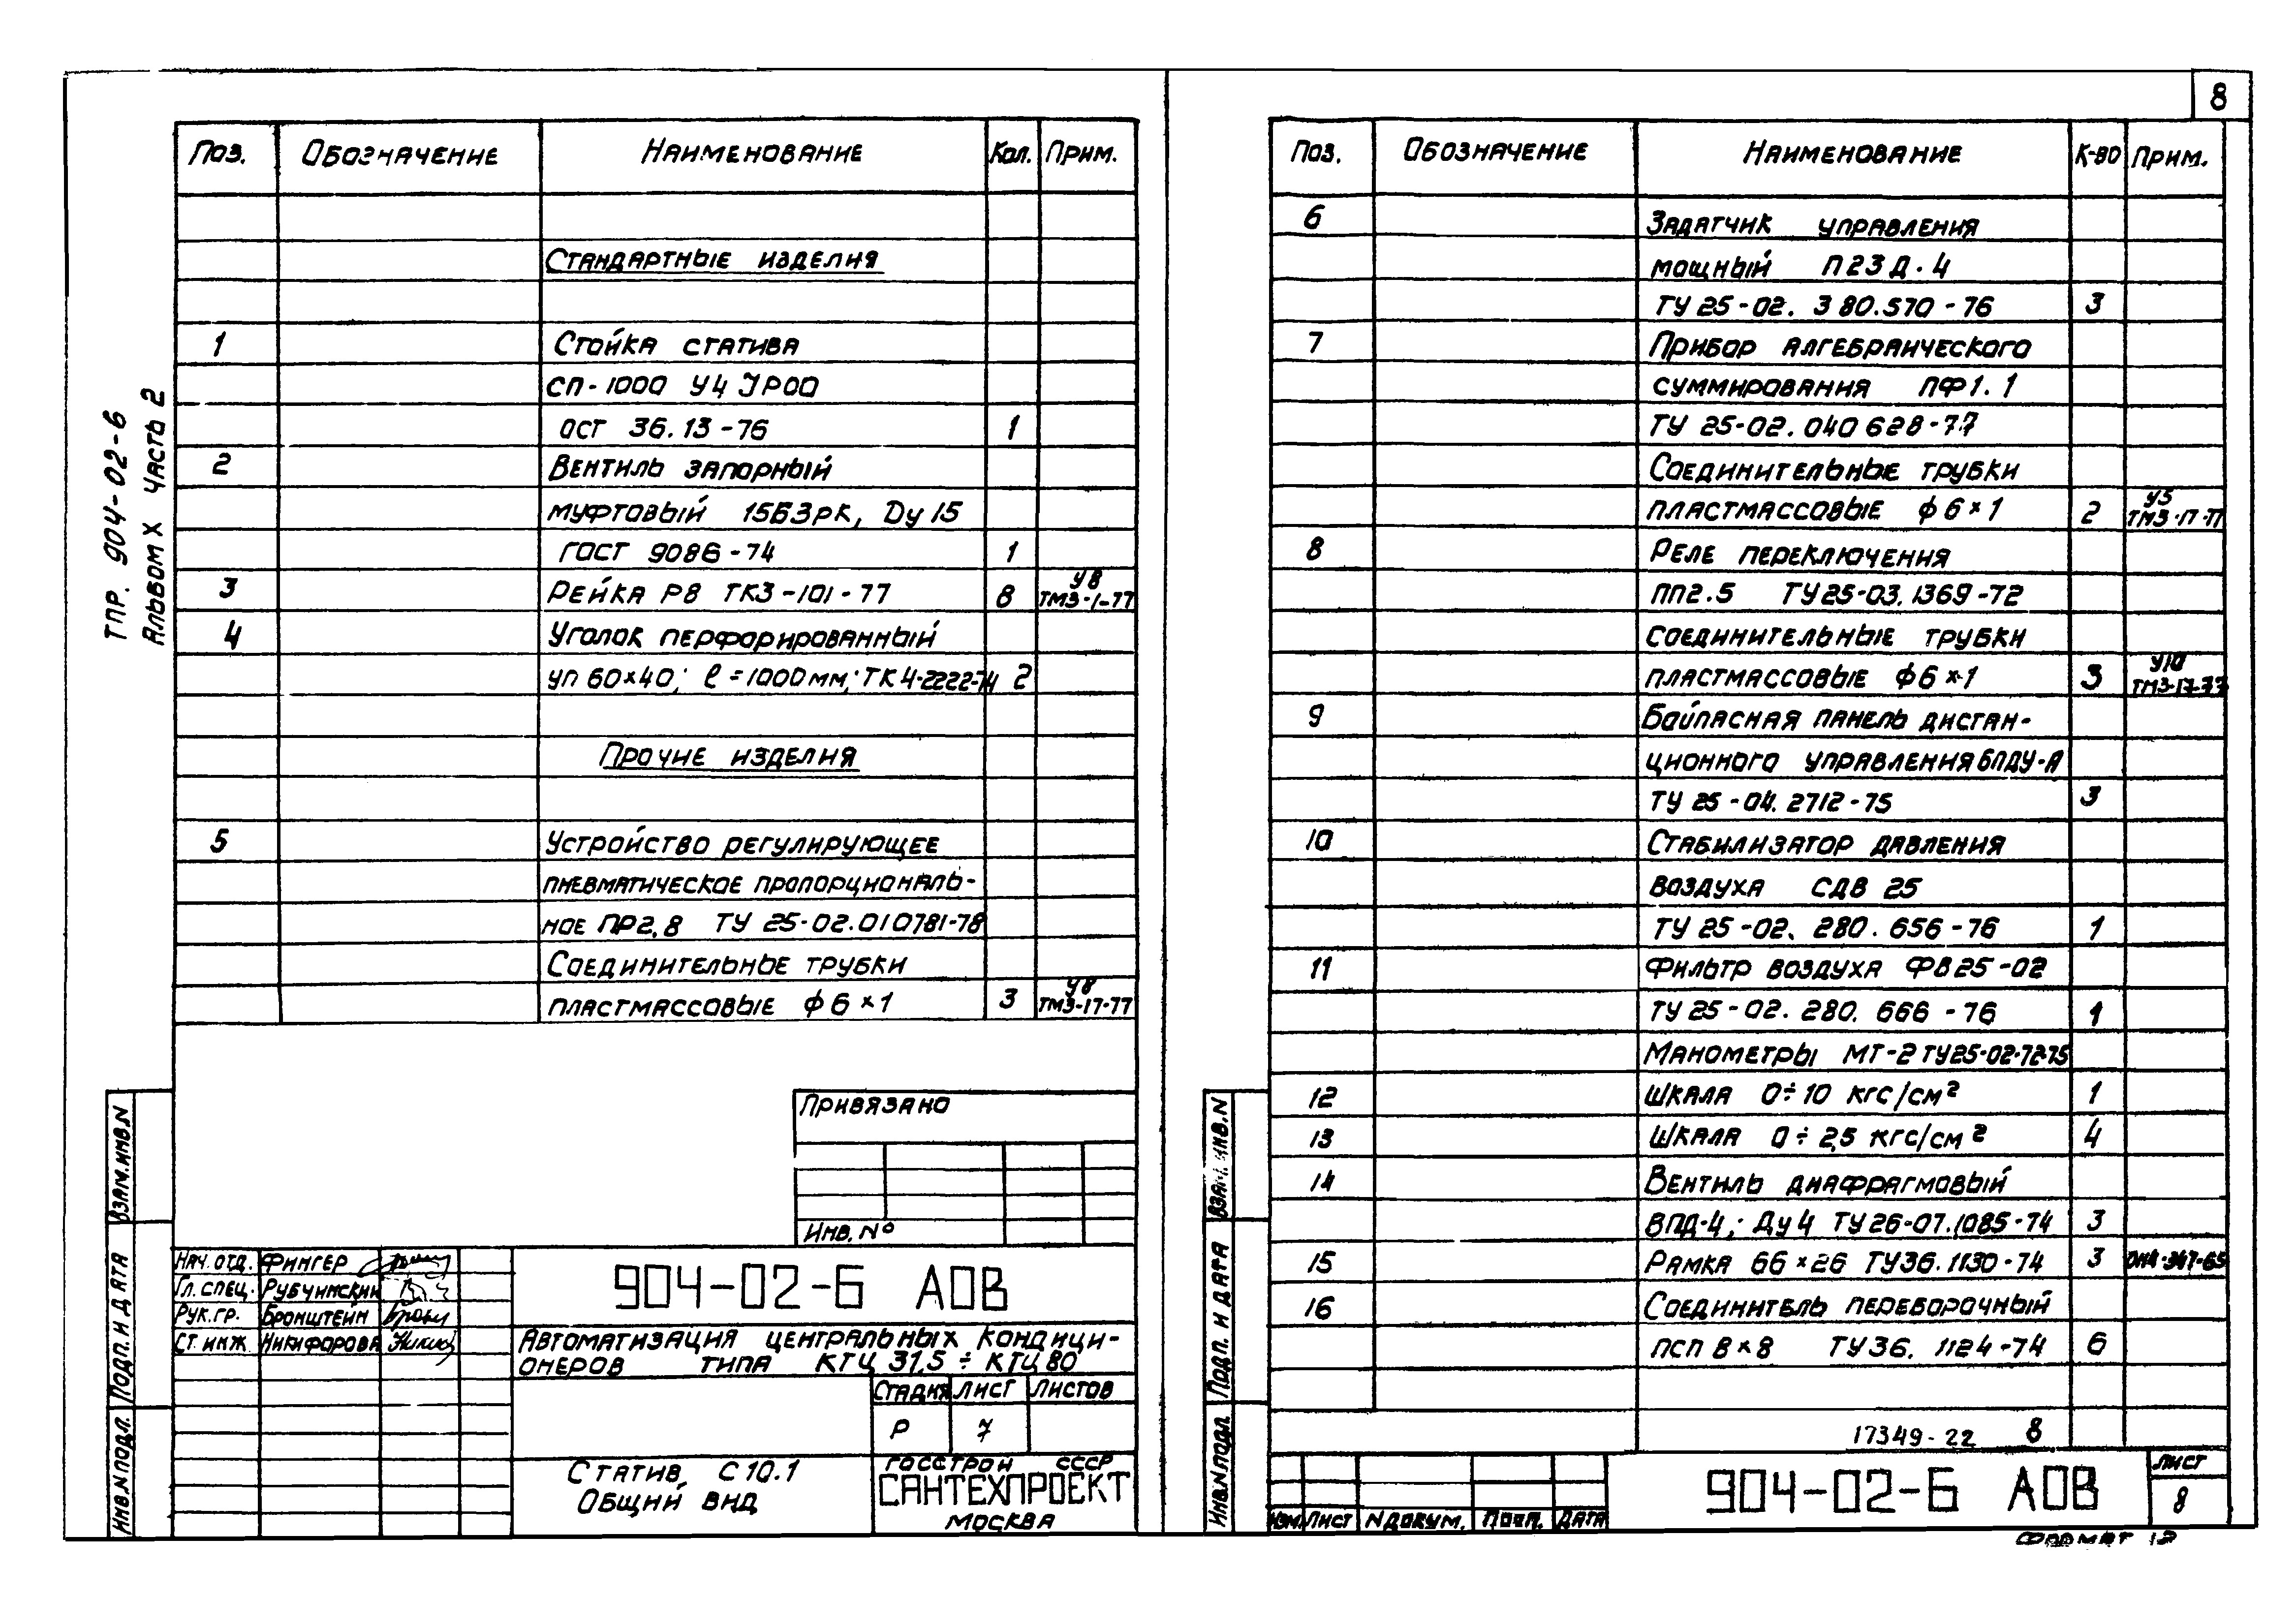 8
ТПР. 904-02-6
Альбом X Часть 2
Поз. Обозначение Наименование Кол. Прим.
Стандартные изделия
1 Стойка статива
СП-1000 У4 JP00
ОСТ 36.13-76 1
2 Вентиль запорный
муфтовый 15Б3рк, Dу 15
ГОСТ 9086-74 1
3 Рейка Р8 ТК3-101-77 8 У8 ТМ3-1-77
4 Уголок перфорированный
УП 60×40; ℓ=1000мм; ТК4-2222-74 2
Прочие изделия
5 Устройство регулирующее
пневматическое пропорциональ-
ное ПР2.8 ТУ 25-02.010781-78
Соединительные трубки
пластмассовые ф6×1 3 У8 ТМ3-17-77
Привязано
Инв. №
Взам.инв.N
Подп. и дата
Инв.N подл.
Нач. отд. Фингер
Гл. спец. Рубчинский
Рук. гр. Бронштейн
Ст. инж. Никифорова
904-02-6 АОВ
Автоматизация центральных кондици-
онеров типа КТЦ 31,5 ÷ КТЦ 80
Стадия Лист Листов
Р 7
Статив С10.1
Общий вид
Госстрой СССР
САНТЕХПРОЕКТ
Москва
Поз. Обозначение Наименование К-во Прим.
6 Задатчик управления
мощный П23Д.4
ТУ 25-02.380.570-76 3
7 Прибор алгебраического
суммирования ПФ1.1
ТУ 25-02.040628-77
Соединительные трубки
пластмассовые ф6×1 2 У5 ТМ3-17-77
8 Реле переключения
ПП2.5 ТУ25-03.1369-72
Соединительные трубки
пластмассовые ф6×1 3 У10 ТМ3-17-77
9 Байпасная панель дистан-
ционного управления БПДУ-А
ТУ 25-04.2712-75 3
10 Стабилизатор давления
воздуха СДВ 25
ТУ 25-02.280.656-76 1
11 Фильтр воздуха ФВ25-02
ТУ 25-02.280.666-76 1
Манометры МТ-2 ТУ25-02-72-75
12 Шкала 0÷10 кгс/см² 1
13 Шкала 0÷2,5 кгс/см² 4
14 Вентиль диафрагмовый
ВПД-4; Ду4 ТУ26-07.1085-74 3
15 Рамка 66×26 ТУ36.1130-74 3
16 Соединитель переборочный
ПСП 8×8 ТУ36.1124-74 6
17349-22 8
Взам.инв.N
Подп. и дата
Инв.N подл.
Изм. Лист N докум. Подп. Дата
904-02-6 АОВ
Лист
8
Формат 12